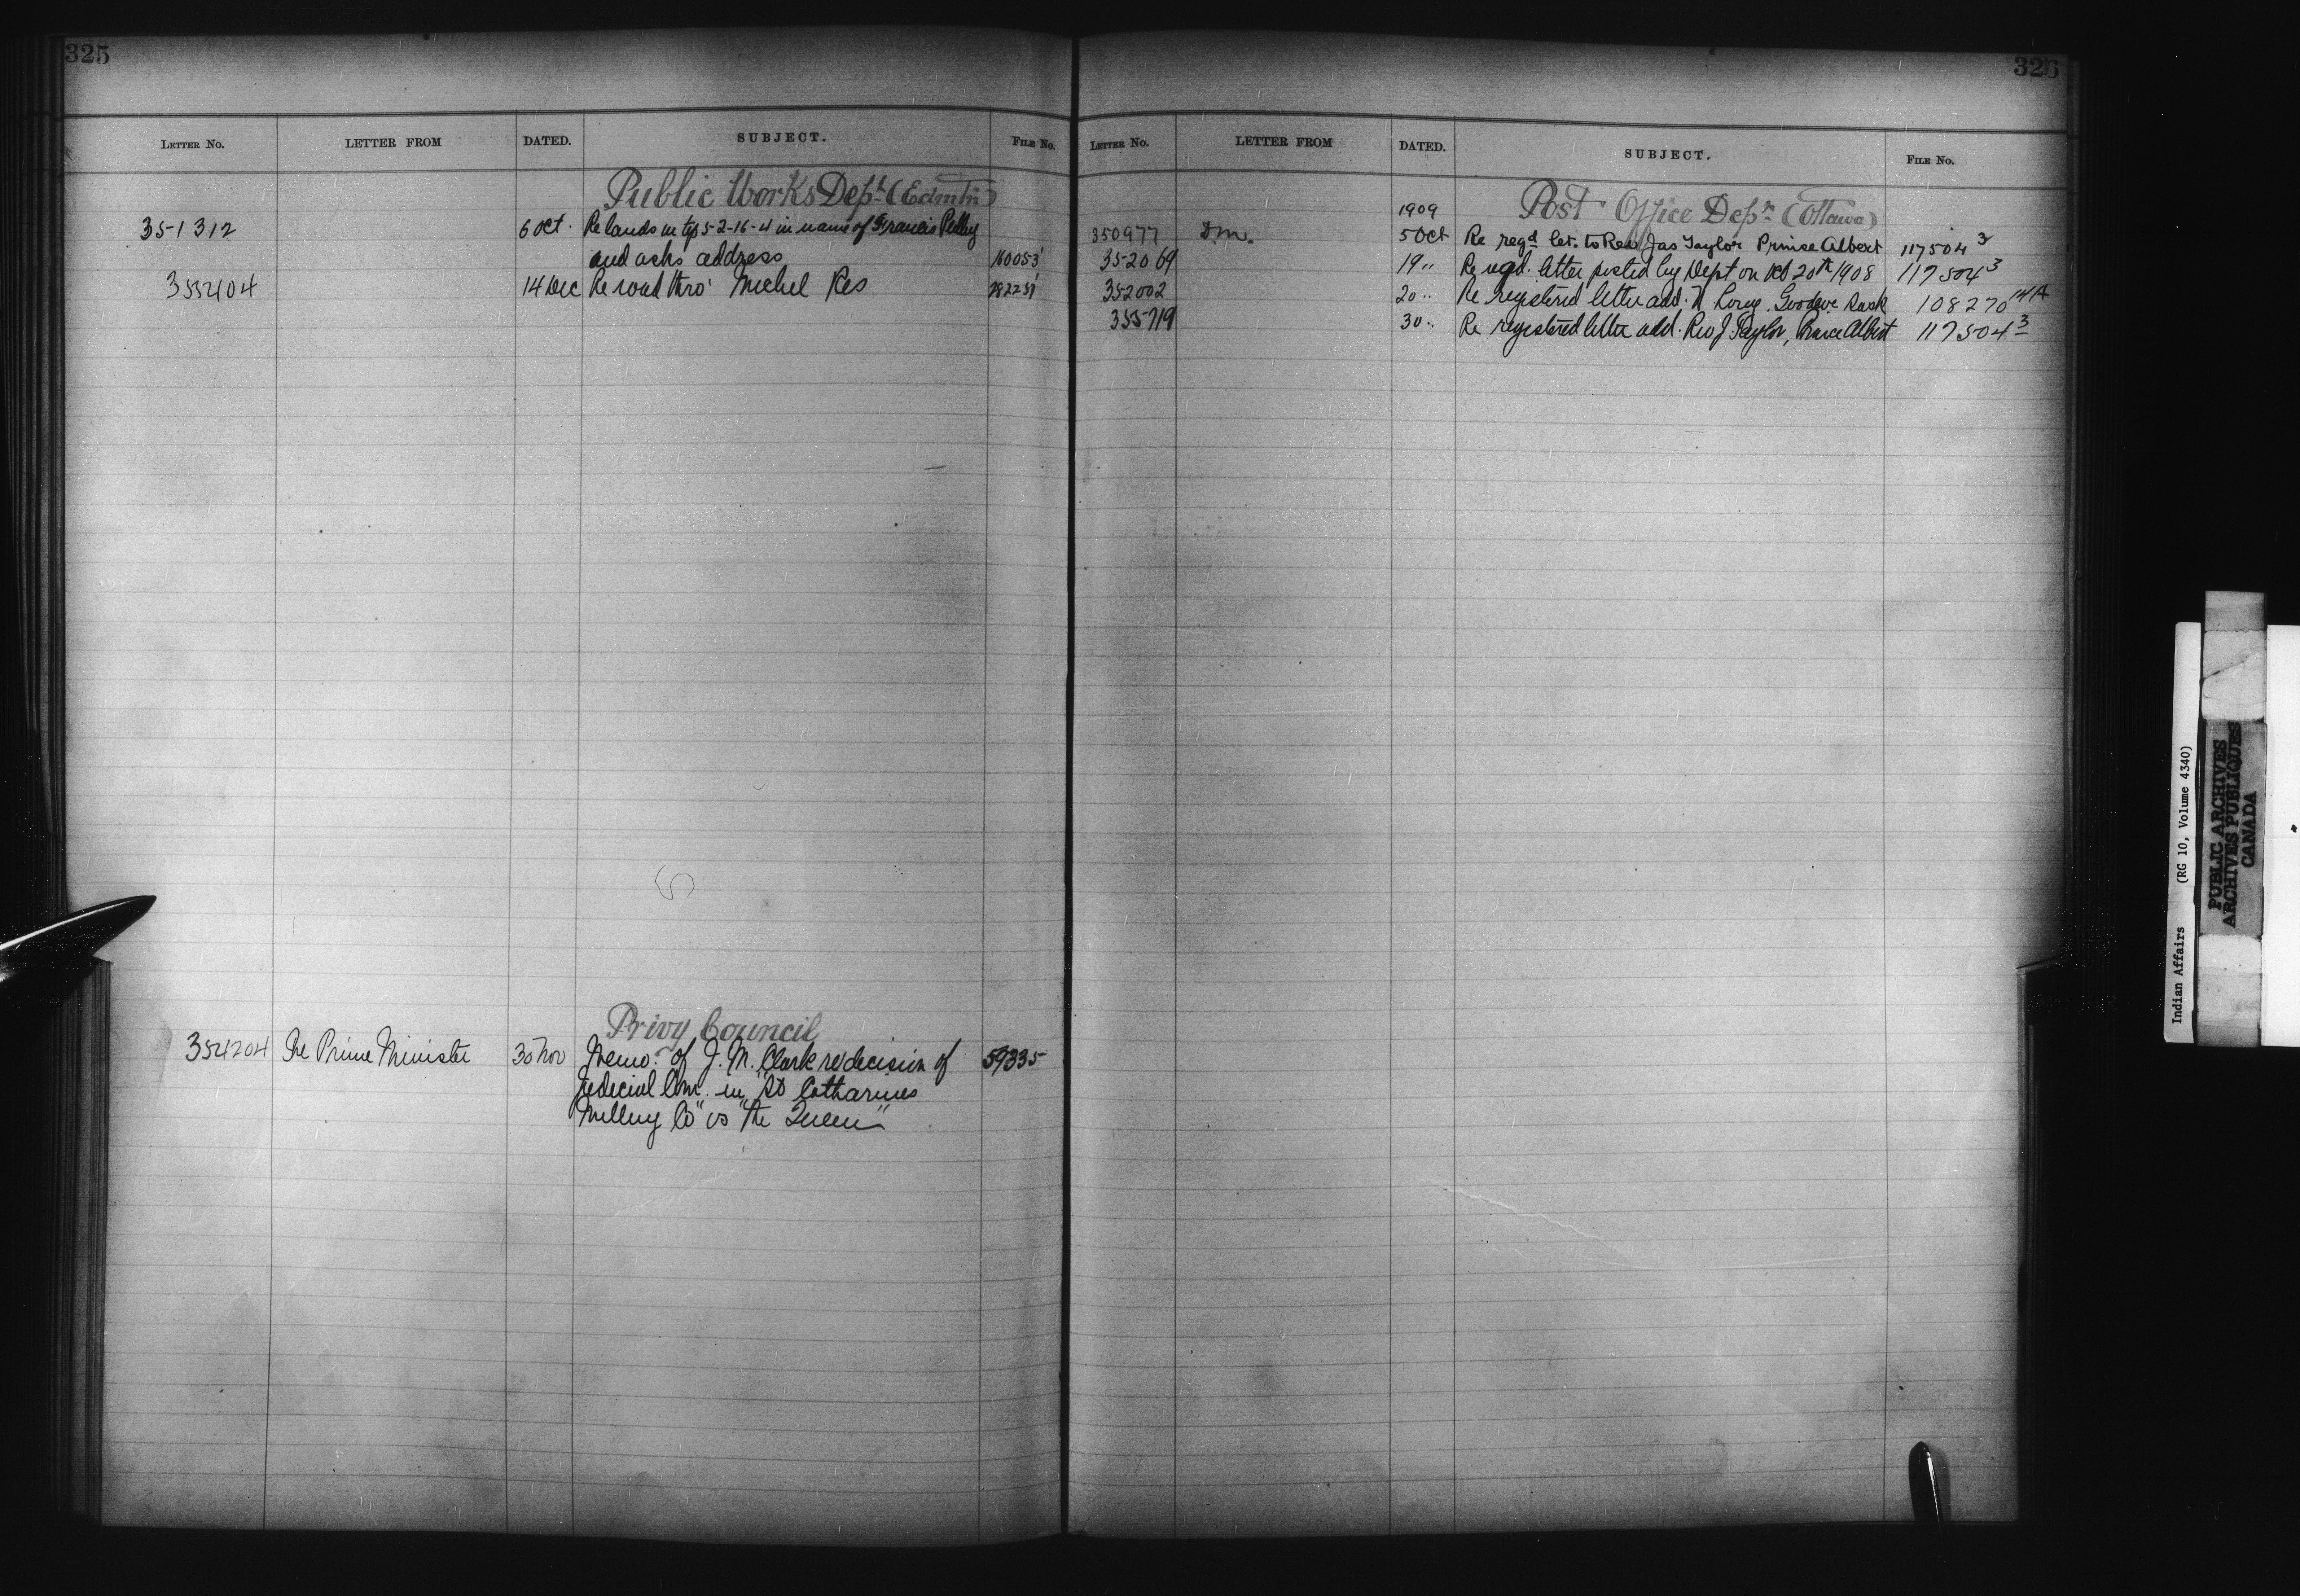 325
LETTER NO. LETTER FROM DATED. SUBJECT. FILE NO.
Public Works Dept (Edmtn)
351312 6 Oct. Re lands in tp 5-2-16-4 in name of Francis Pelley
and asks address 160053¹
355404 14 Dec Re road thro' Michel Res 282251
Privy Council
354204 The Prime Minister 30 Nov Memo. of J. M. Clark re decision of 59335
Judicial Com. in "St Catharines
Milling Co" vs "The Queen"
326
LETTER NO. LETTER FROM DATED. SUBJECT. FILE NO.
Post Office Dept (Ottawa)
1909
350977 D.M. 5 Oct Re regd let. to Rev Jas Taylor Prince Albert 117504³
352069 19 " Re regd. letter posted by Dept on Oct 20th 1908 117504³
352002 20 " Re registered letter add. N. Goodeve Sask 108270 14A
355719 30 " Re registered letter add. Rev J. Taylor, Prince Albert 117504³
Indian Affairs (RG 10, Volume 4340)
PUBLIC ARCHIVES
ARCHIVES PUBLIQUES
CANADA